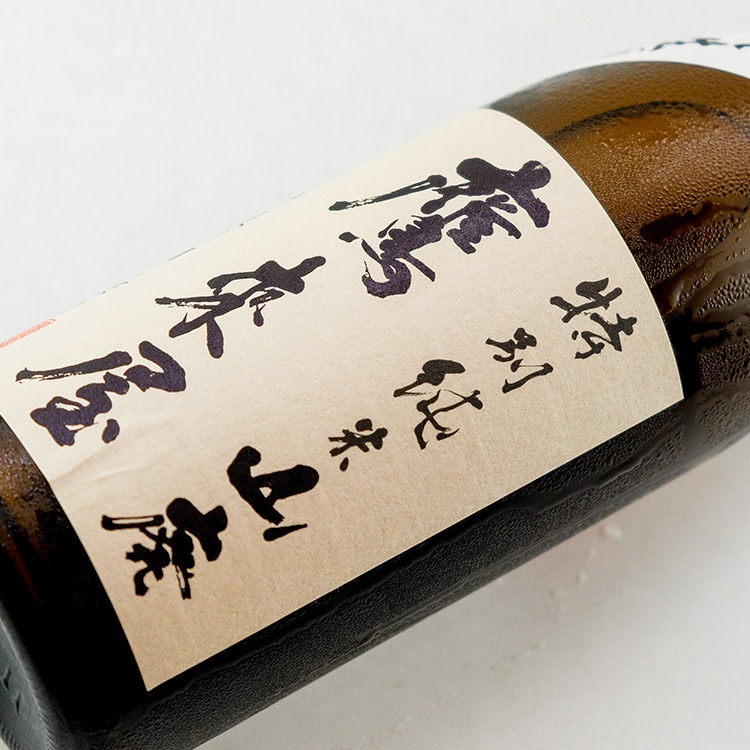 特別純米山廃
鷹来屋